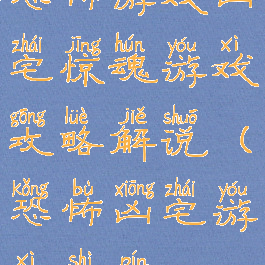 zhái jīng hún yóu xì
宅惊魂游戏
gōng lüè jiě shuō
攻略解说（
kǒng bù xiōng zhái yóu
恐怖凶宅游
xì shì pín